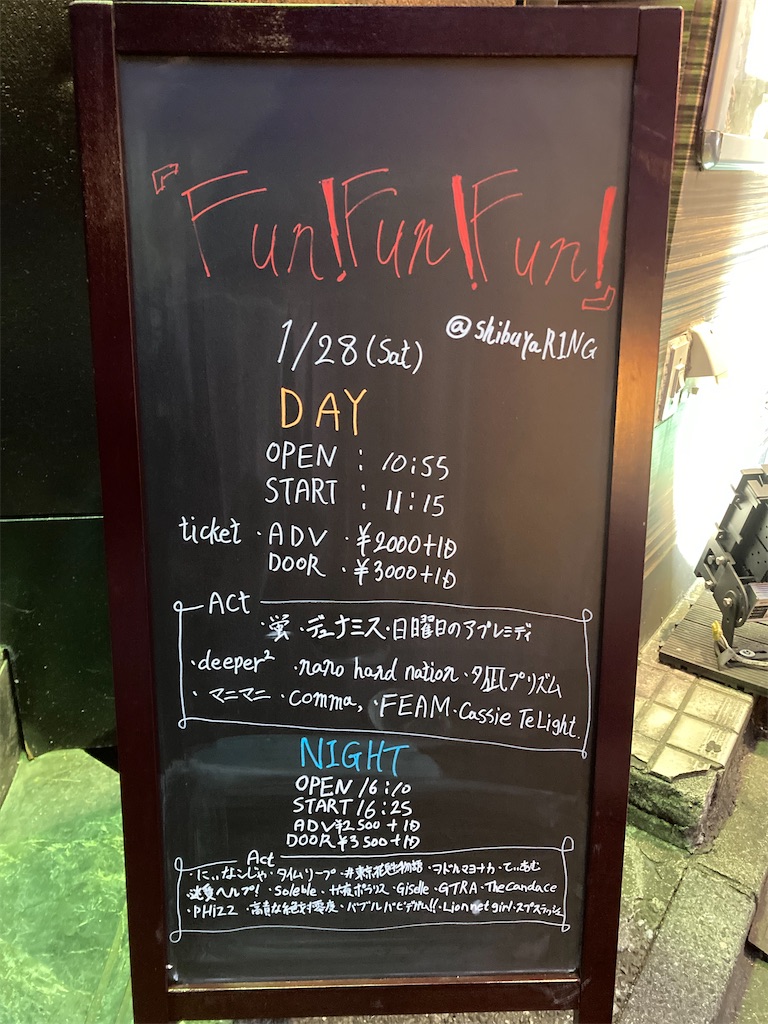 『Fun!Fun!Fun!』
@shibuyaRING
1/28(Sat)
DAY
OPEN : 10:55
START : 11:15
ticket ・ADV ・¥2000+1D
DOOR ・¥3000+1D
Act
・蛍・デュナミス・日曜日のアプレミディ
・deeper² ・nano hand nation・夕凪プリズム
・マニマニ ・comma, ・FEAM・Cassie TeLight.
NIGHT
OPEN 16:10
START 16:25
ADV¥2500+1D
DOOR¥3500+1D
Act
・にぃなこじゃ・タイムリープ・#東京花魁物語・ヲドルマヨナカ・てぃあむ
迷宮ヘルプ!・Soleble・ポラリス・Giselle・GTRA・The Candace
・PHIZZ ・高貴な絶対零度・バブルバビデガム!!・Lionnet girl・スプスラッシュ